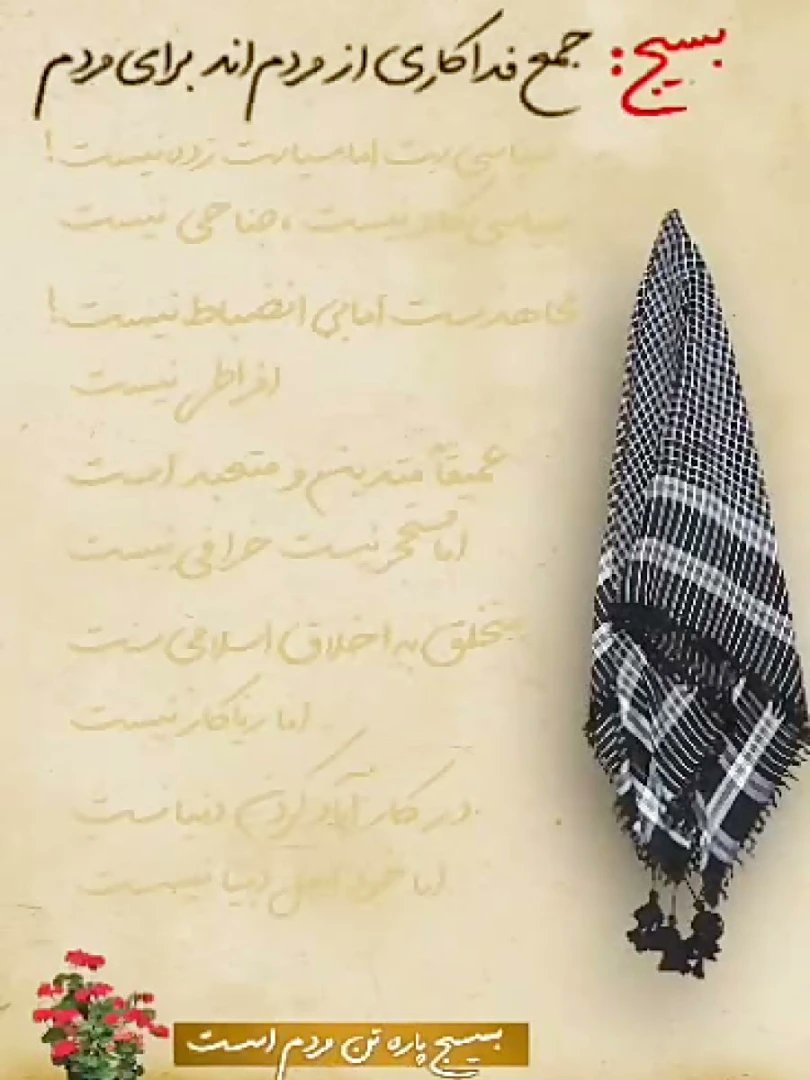 بسیج: جمع فداکاری از مردم اند برای مردم
سیاسی ست اما سیاست زده نیست!
سیاسی کار نیست، جناحی نیست
مجاهد ست اما بی انضباط نیست!
افراطی نیست
عمیقاً متدین و متعبد است
اما متحجر نیست خرافی نیست
متخلق به اخلاق اسلامی ست
اما ریاکار نیست
در کار آباد کردن دنیاست
اما خود اهل دنیا نیست
بسیج پاره تن مردم است